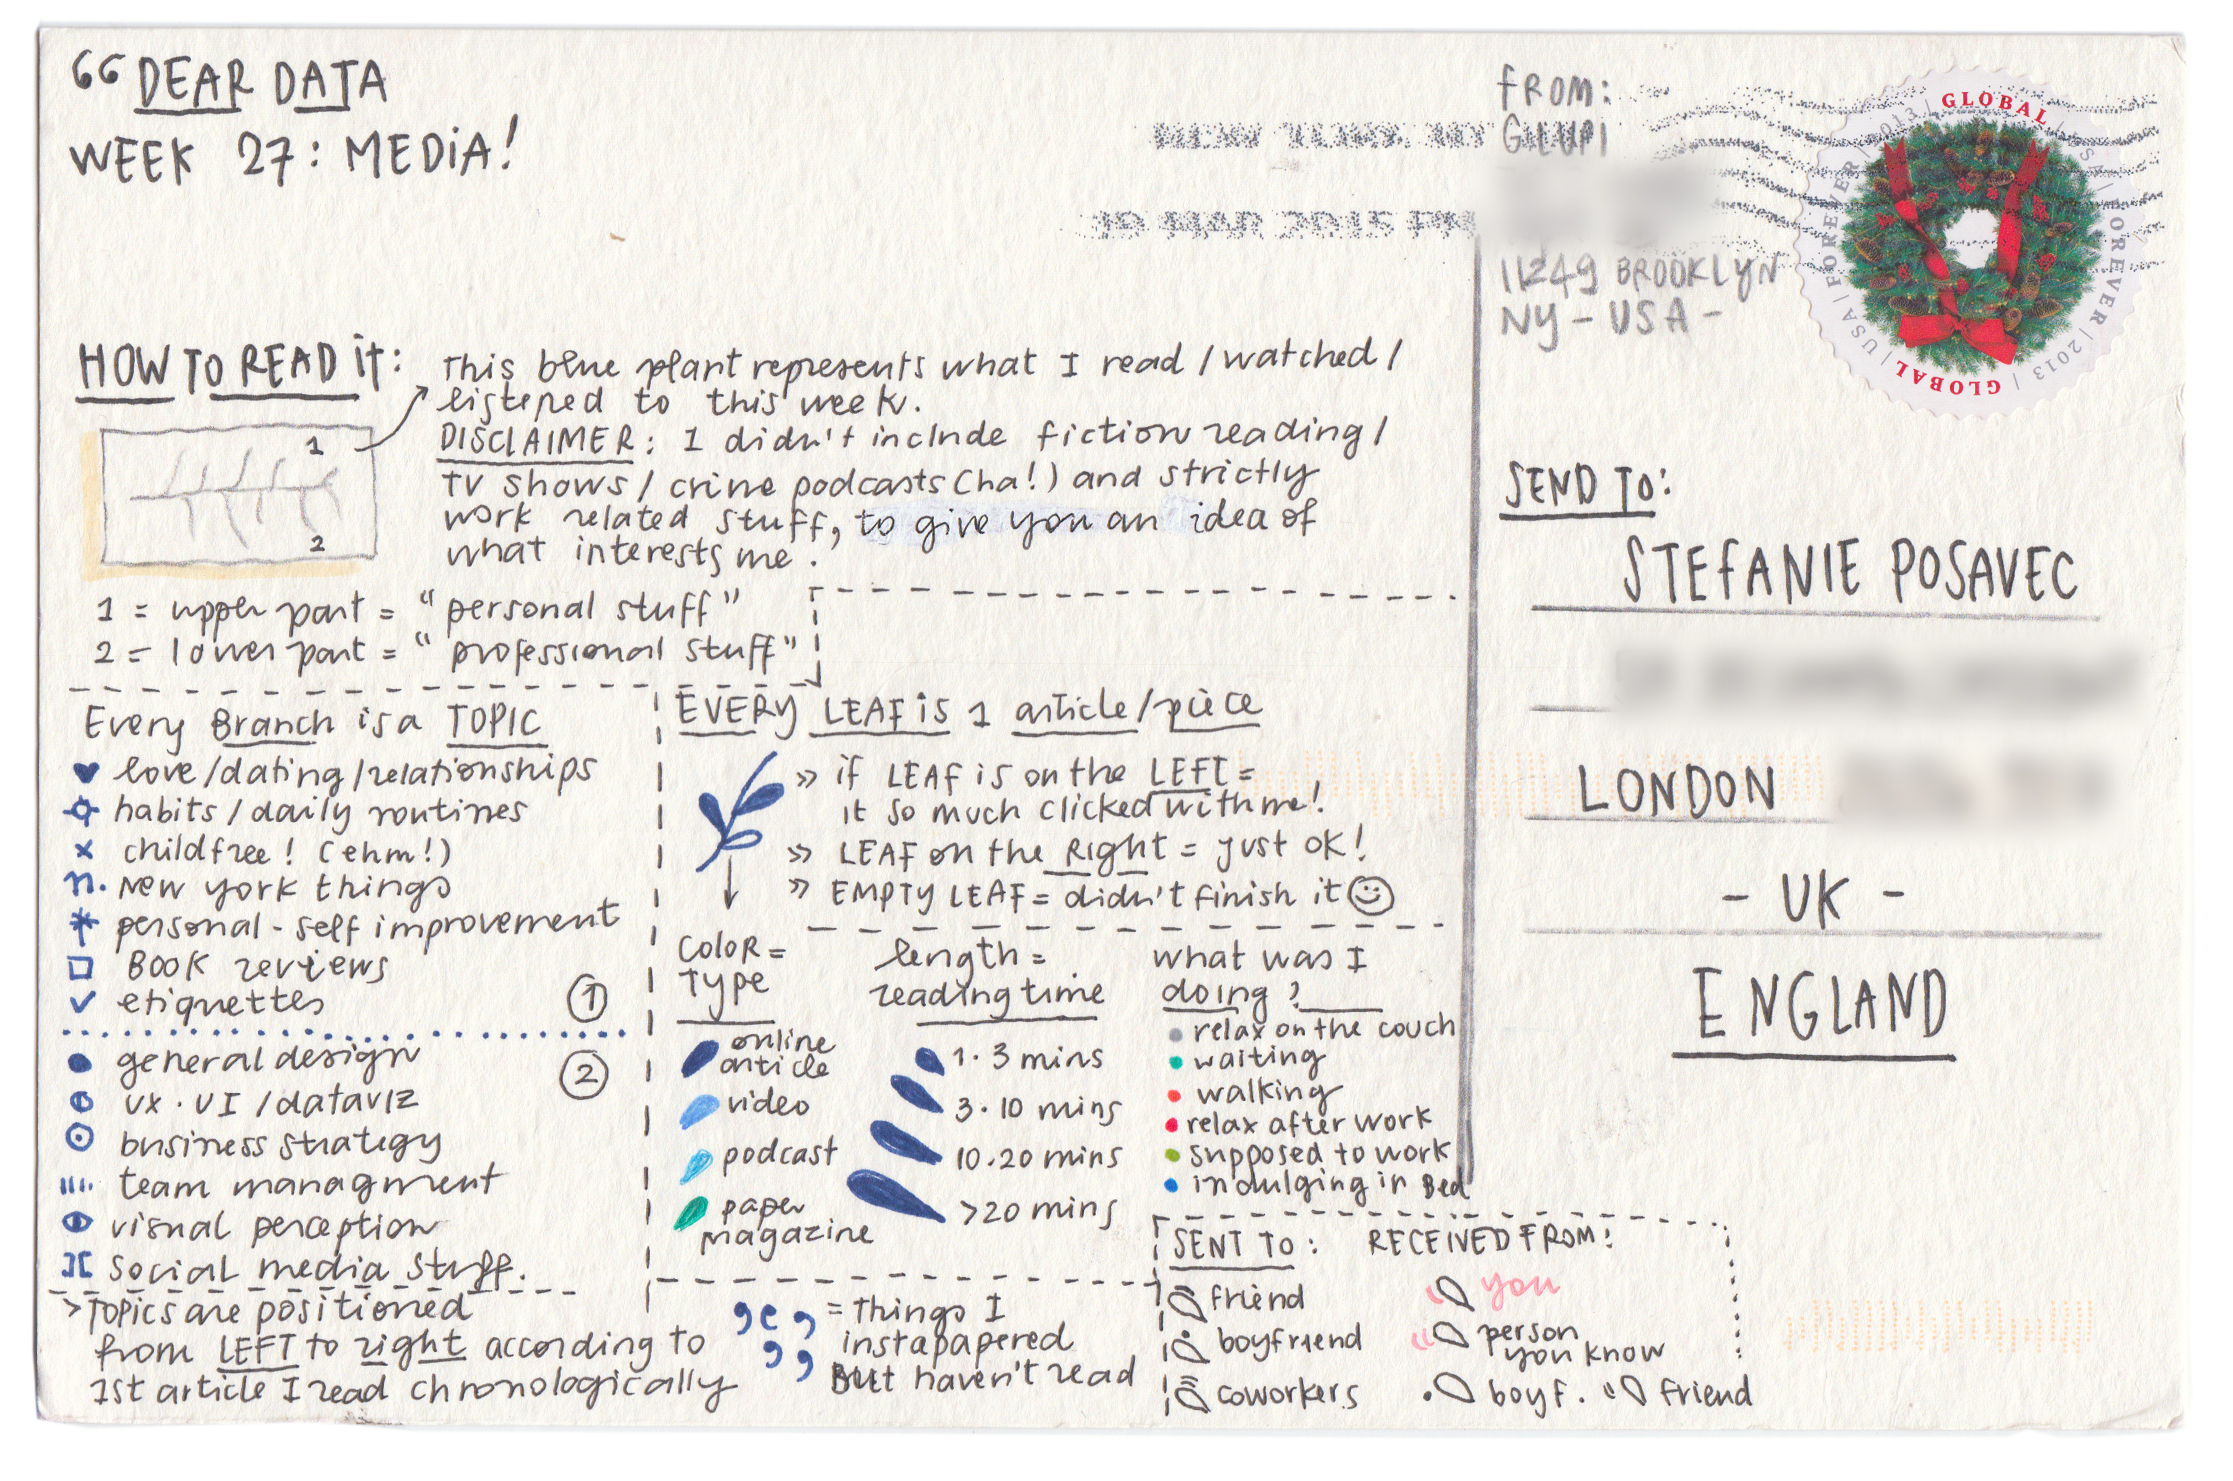 DEAR DATA
WEEK 27: MEDIA!
NEW YORK NY
19 MAR 2015 PM
FROM:
G. LUPI
11249 BROOKLYN
NY - USA -
GLOBAL | USA | FOREVER | 2013 | GLOBAL | USA | FOREVER | 2013 |
HOW TO READ it:
This blue plant represents what I read / watched /
listened to this week.
DISCLAIMER: I didn't include fiction reading /
TV shows / crime podcasts (ha!) and strictly
work related stuff, to give you an idea of
what interests me.
1
2
1 = upper part = "personal stuff"
2 = lower part = "professional stuff"
Every Branch is a TOPIC
love/dating/relationships
habits / daily routines
childfree! (ehm!)
n. New york things
personal - self improvement
BOOK reviews
etiquettes
1
general design
2
UX. UI / dataviz
business strategy
team managment
visual perception
social media stuff.
> TOPICS are positioned
from LEFT to right according to
1st article I read chronologically
EVERY LEAF is 1 article/piece
» if LEAF is on the LEFT =
it so much clicked with me!
» LEAF on the Right = just OK!
» EMPTY LEAF = didn't finish it
COLOR =
Type
online
article
video
podcast
paper
magazine
length =
reading time
1. 3 mins
3. 10 mins
10.20 mins
>20 mins
what was I
doing?
relax on the couch
waiting
walking
relax after work
supposed to work
indulging in Bed
= Things I
instapapered
But haven't read
SENT TO:
friend
boyfriend
coworkers
RECEIVED FROM:
you
person
you know
boyf.
friend
SEND TO:
STEFANIE POSAVEC
LONDON
- UK -
ENGLAND